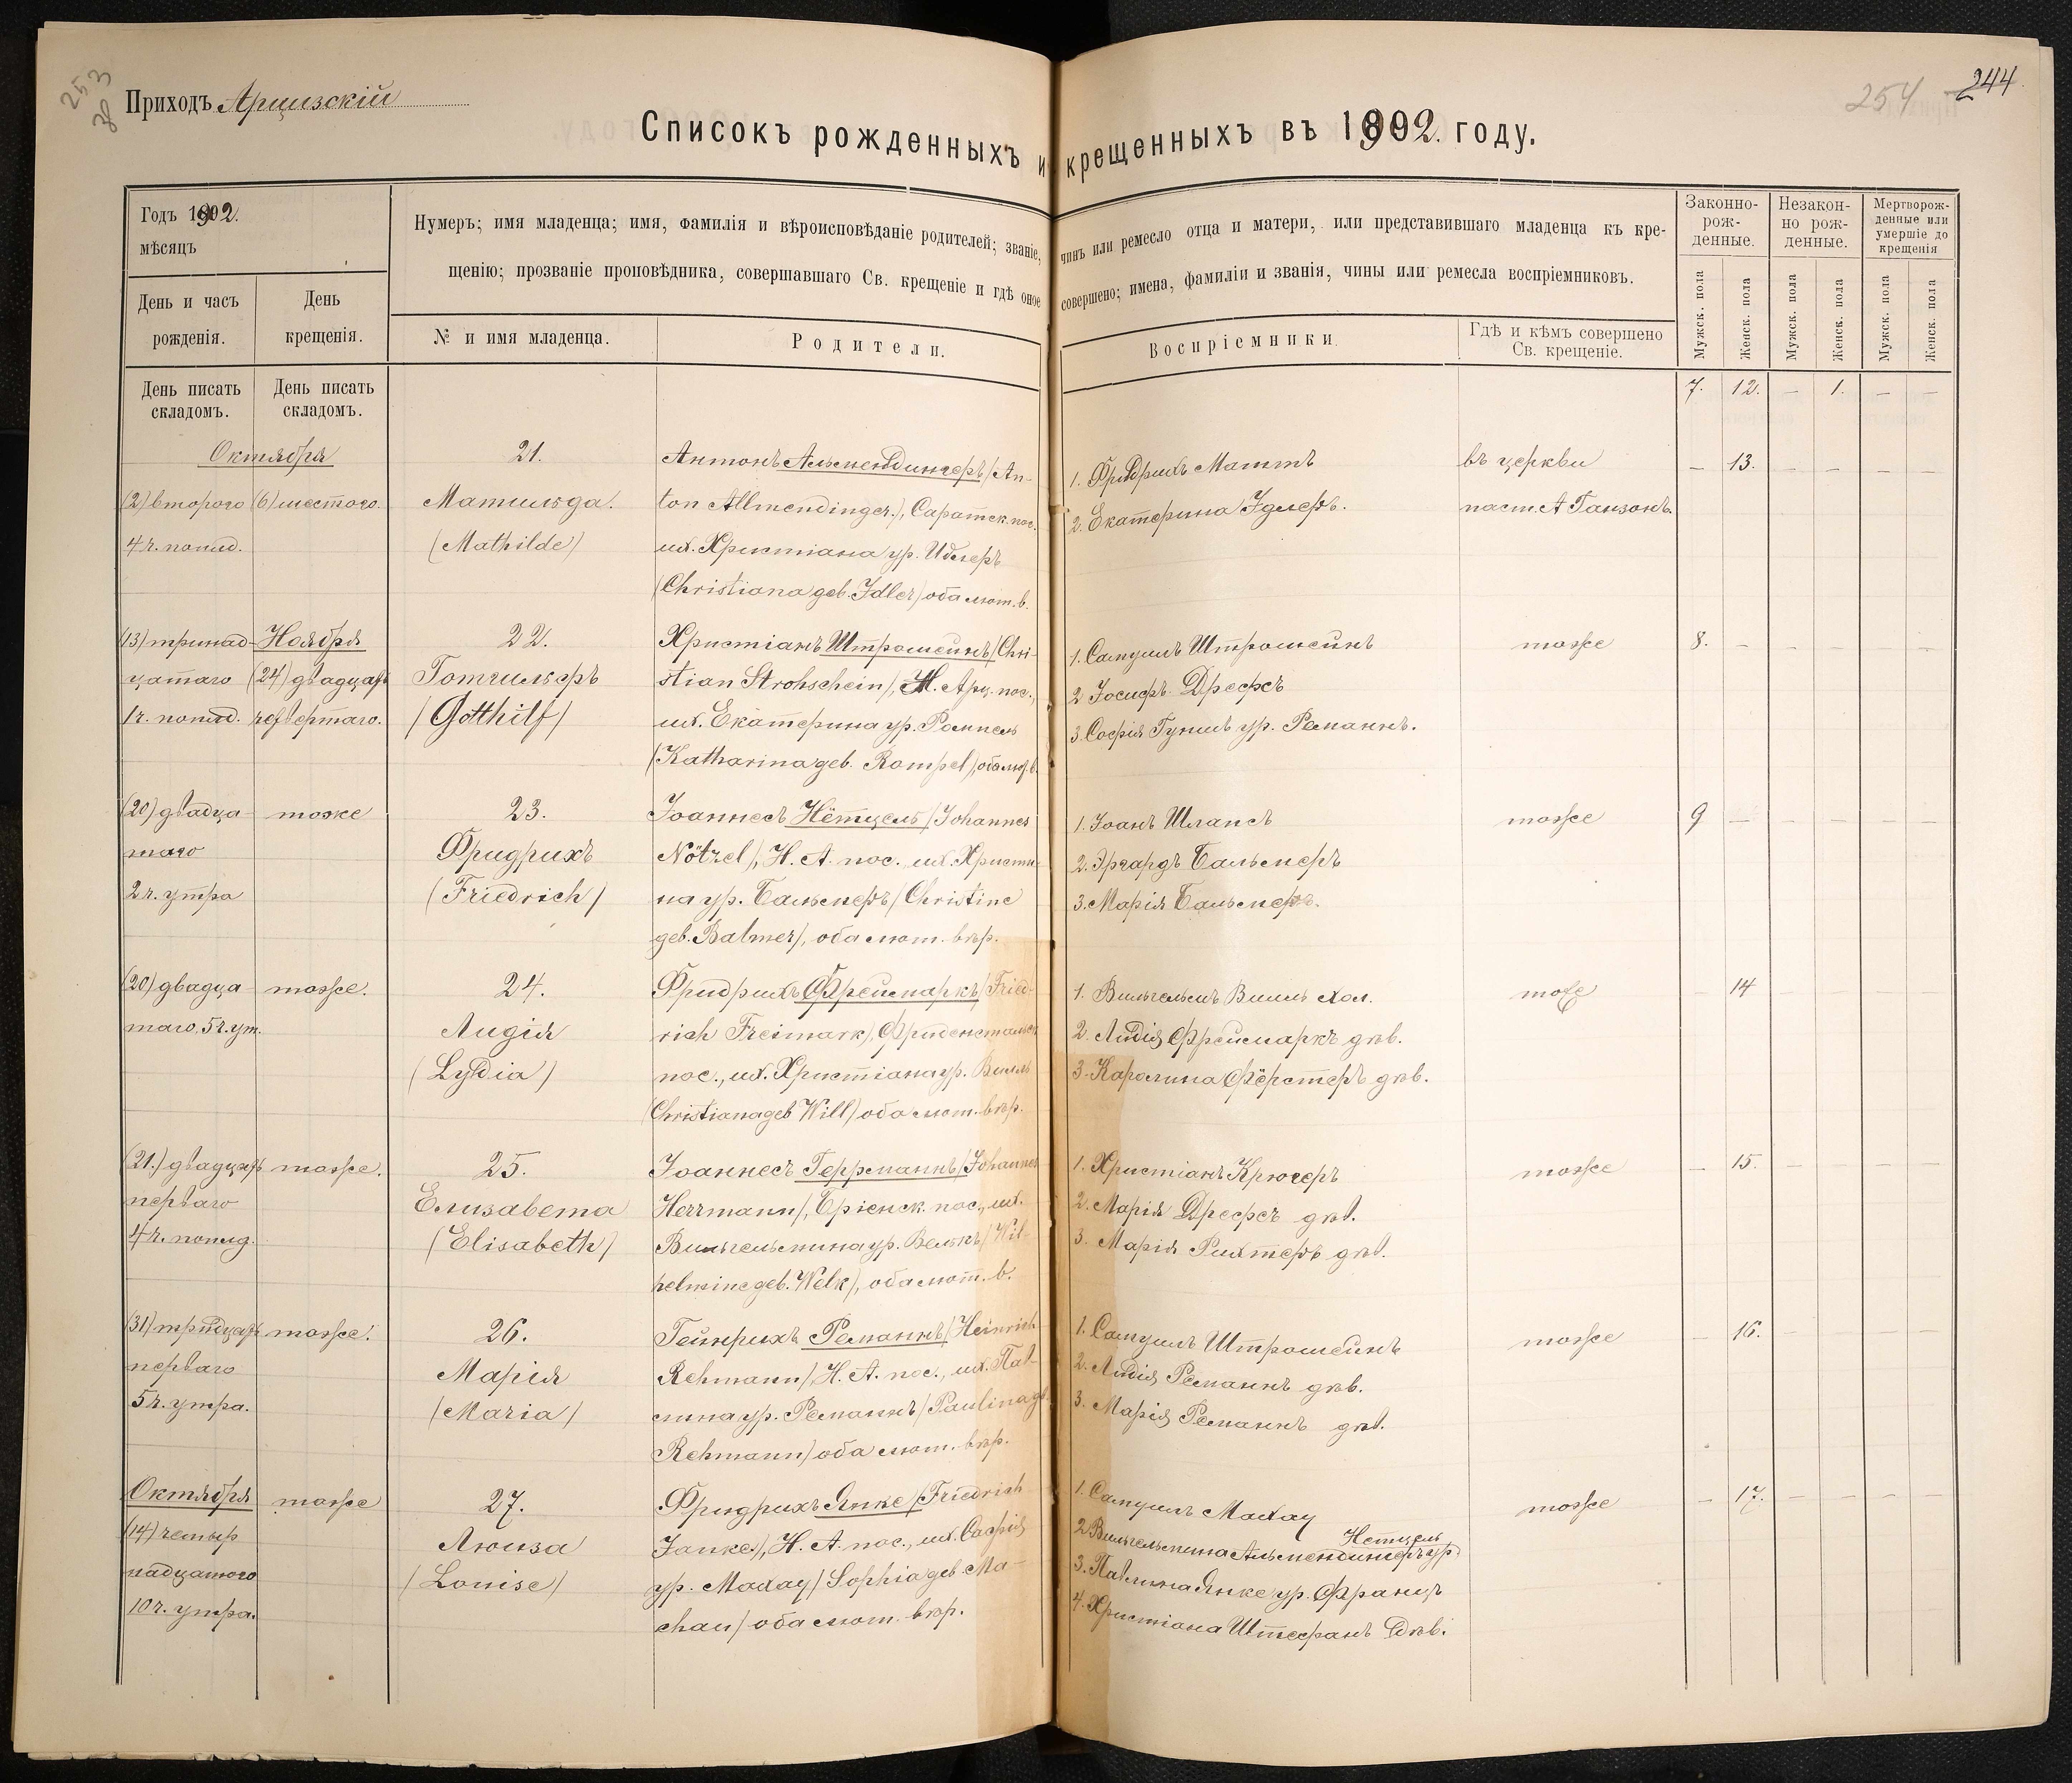 253
38
Приходъ Арцизскій
254
244
Списокъ рожденныхъ и крещенныхъ въ 1902. году.
Годъ 1902.
мѣсяцъ
День и часъ рожденія.
День крещенія.
Нумеръ; имя младенца; имя, фамилія и вѣроисповѣданіе родителей; званіе, чинъ или ремесло отца и матери, или представившаго младенца къ кре-
щенію; прозваніе проповѣдника, совершавшаго Св. крещеніе и гдѣ оное совершено; имена, фамиліи и званія, чины или ремесла воспріемниковъ.
№ и имя младенца.
Родители.
Воспріемники.
Гдѣ и кѣмъ совершено Св. крещеніе.
Законно-рож-денные.
Незакон-но рож-денные.
Мертворож-денные или умершіе до крещенія
Мужск. пола
Женск. пола
Мужск. пола
Женск. пола
Мужск. пола
Женск. пола
День писать складомъ.
День писать складомъ.
7. 12. — 1. — —
Октября
(2) второго
4 ч. попол.
(6) шестого.
21.
Матильда.
(Mathilde)
Антонъ Альмендингеръ (An-
ton Allmendinger.), Саратск. пос.
их. Христіана ур. Идлеръ
(Christiana geb. Idler) оба лют. в.
1. Фридрихъ Маттъ
2. Екатерина Идлеръ.
въ церкви
паст. А Ганзонъ.
— 13. — — — —
(13) тринад-
цатаго
1 ч. попол.
Ноября
(24) двадцать
четвертаго.
22.
Готгильфъ
(Gotthilf)
Христіанъ Штрошейнъ (Chri-
stian Strohschein), Н. Арц. пос.,
их. Екатерина ур. Ромпель
(Katharina geb. Rompel), оба лют. в.
1. Самуилъ Штрошейнъ
2 Іосифъ Дрефсъ
3. Софія Гуншъ ур. Реманнъ.
тоже
8. — — — — —
(20) двадца-
таго
2 ч. утра
тоже
23.
Фридрихъ
(Friedrich)
Іоаннесъ Нётцель (Johannes
Nötzel), Н. А. пос. их. Христи-
на ур. Бальмеръ (Christine
geb. Balmer), оба лют. вѣр.
1. Іоанъ Шлапсъ
2. Эргардъ Бальмеръ
3. Марія Бальмеръ.
тоже
9 — — — — —
(20) двадца-
таго, 5 ч. ут.
тоже.
24.
Лидія
(Lydia)
Фридрихъ Фреймаркъ (Fried-
rich Freimark), Фриденстальск
пос., их. Христіана ур. Вилль
(Christiana geb Will) оба лют. вѣр.
1. Вильгельмъ Вилль хол.
2. Лидія Фреймаркъ дѣв.
3. Каролина Фёрстеръ дѣв.
тоже
— 14 — — — —
(21.) двадцать
перваго
4 ч. попод.
тоже.
25.
Елизавета
(Elisabeth)
Іоаннесъ Геррманнъ (Johannes
Herrmann), Бріенск. пос., их.
Вильгельмина ур. Велькъ (Wil-
helmine geb. Welk), оба лют. в.
1. Христіанъ Крюгеръ
2. Марія Дрефсъ дѣв.
3. Марія Рихтеръ дѣв.
тоже
— 15. — — — —
(31) тридцать
перваго
5 ч. утра.
тоже.
26.
Марія
(Maria)
Гейнрихъ Реманнъ (Heinrich
Rehmann), Н. А. пос., их. Пав-
лина ур. Реманнъ (Paulina geb.
Rehmann) оба лют. вѣр.
1. Самуилъ Штрошейнъ
2. Лидія Реманнъ дѣв.
3. Марія Реманнъ дѣв.
тоже
— 16. — — — —
Октября
(14) четыр
надцатого
10 ч. утра.
тоже
27.
Люиза
(Louise)
Фридрихъ Янке (Friedrich
Janke), Н. А. пос., их. Софія
ур. Махау (Sophia geb. Ma-
chau) оба лют. вѣр.
1. Самуилъ Махау
2. Вильгельмина Альмендингеръ ур. Нетцель
3. Павлина Янке ур. Францъ
4. Христіана Штефанъ дѣв.
тоже
— 17. — — — —